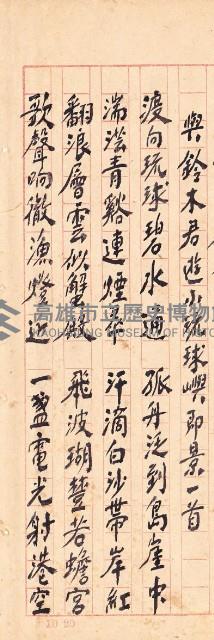 與鈴木君遊小琉球嶼即景一首
渡向琉球碧水通　孤舟泛到島崖中
湍瀠青谿連煙　汗滴白沙帶岸紅
翻浪層雲似蜃　飛波瑚璉若蟾宮
歌聲响徹漁燈近　一盞電光射港空
高雄市立歷史博物館
KAOHSIUNG MUSEUM OF HISTORY
10 20